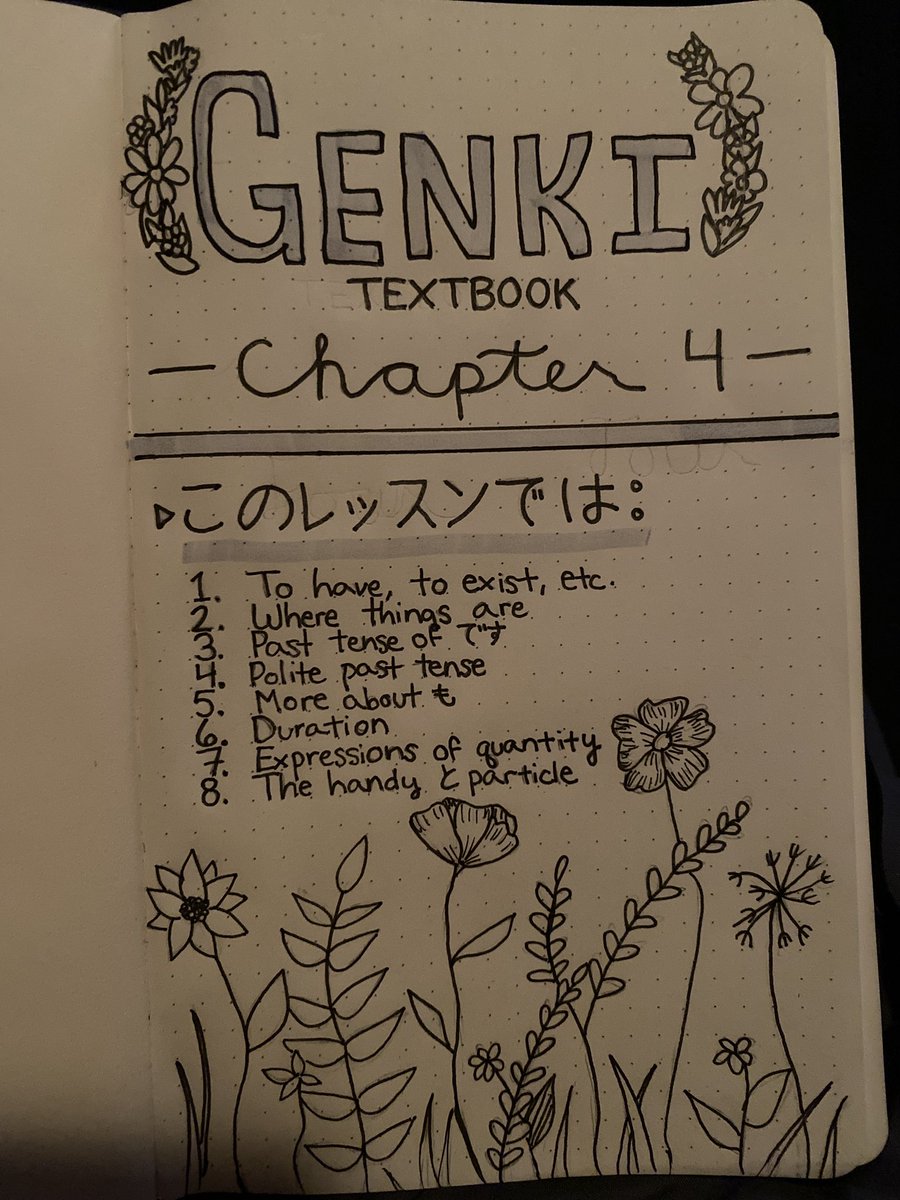 GENKI
TEXTBOOK
—Chapter 4—
▷このレッスンでは:
1. To have, to exist, etc.
2. Where things are
3. Past tense of です
4. Polite past tense
5. More about も
6. Duration
7. Expressions of quantity
8. The handy と particle